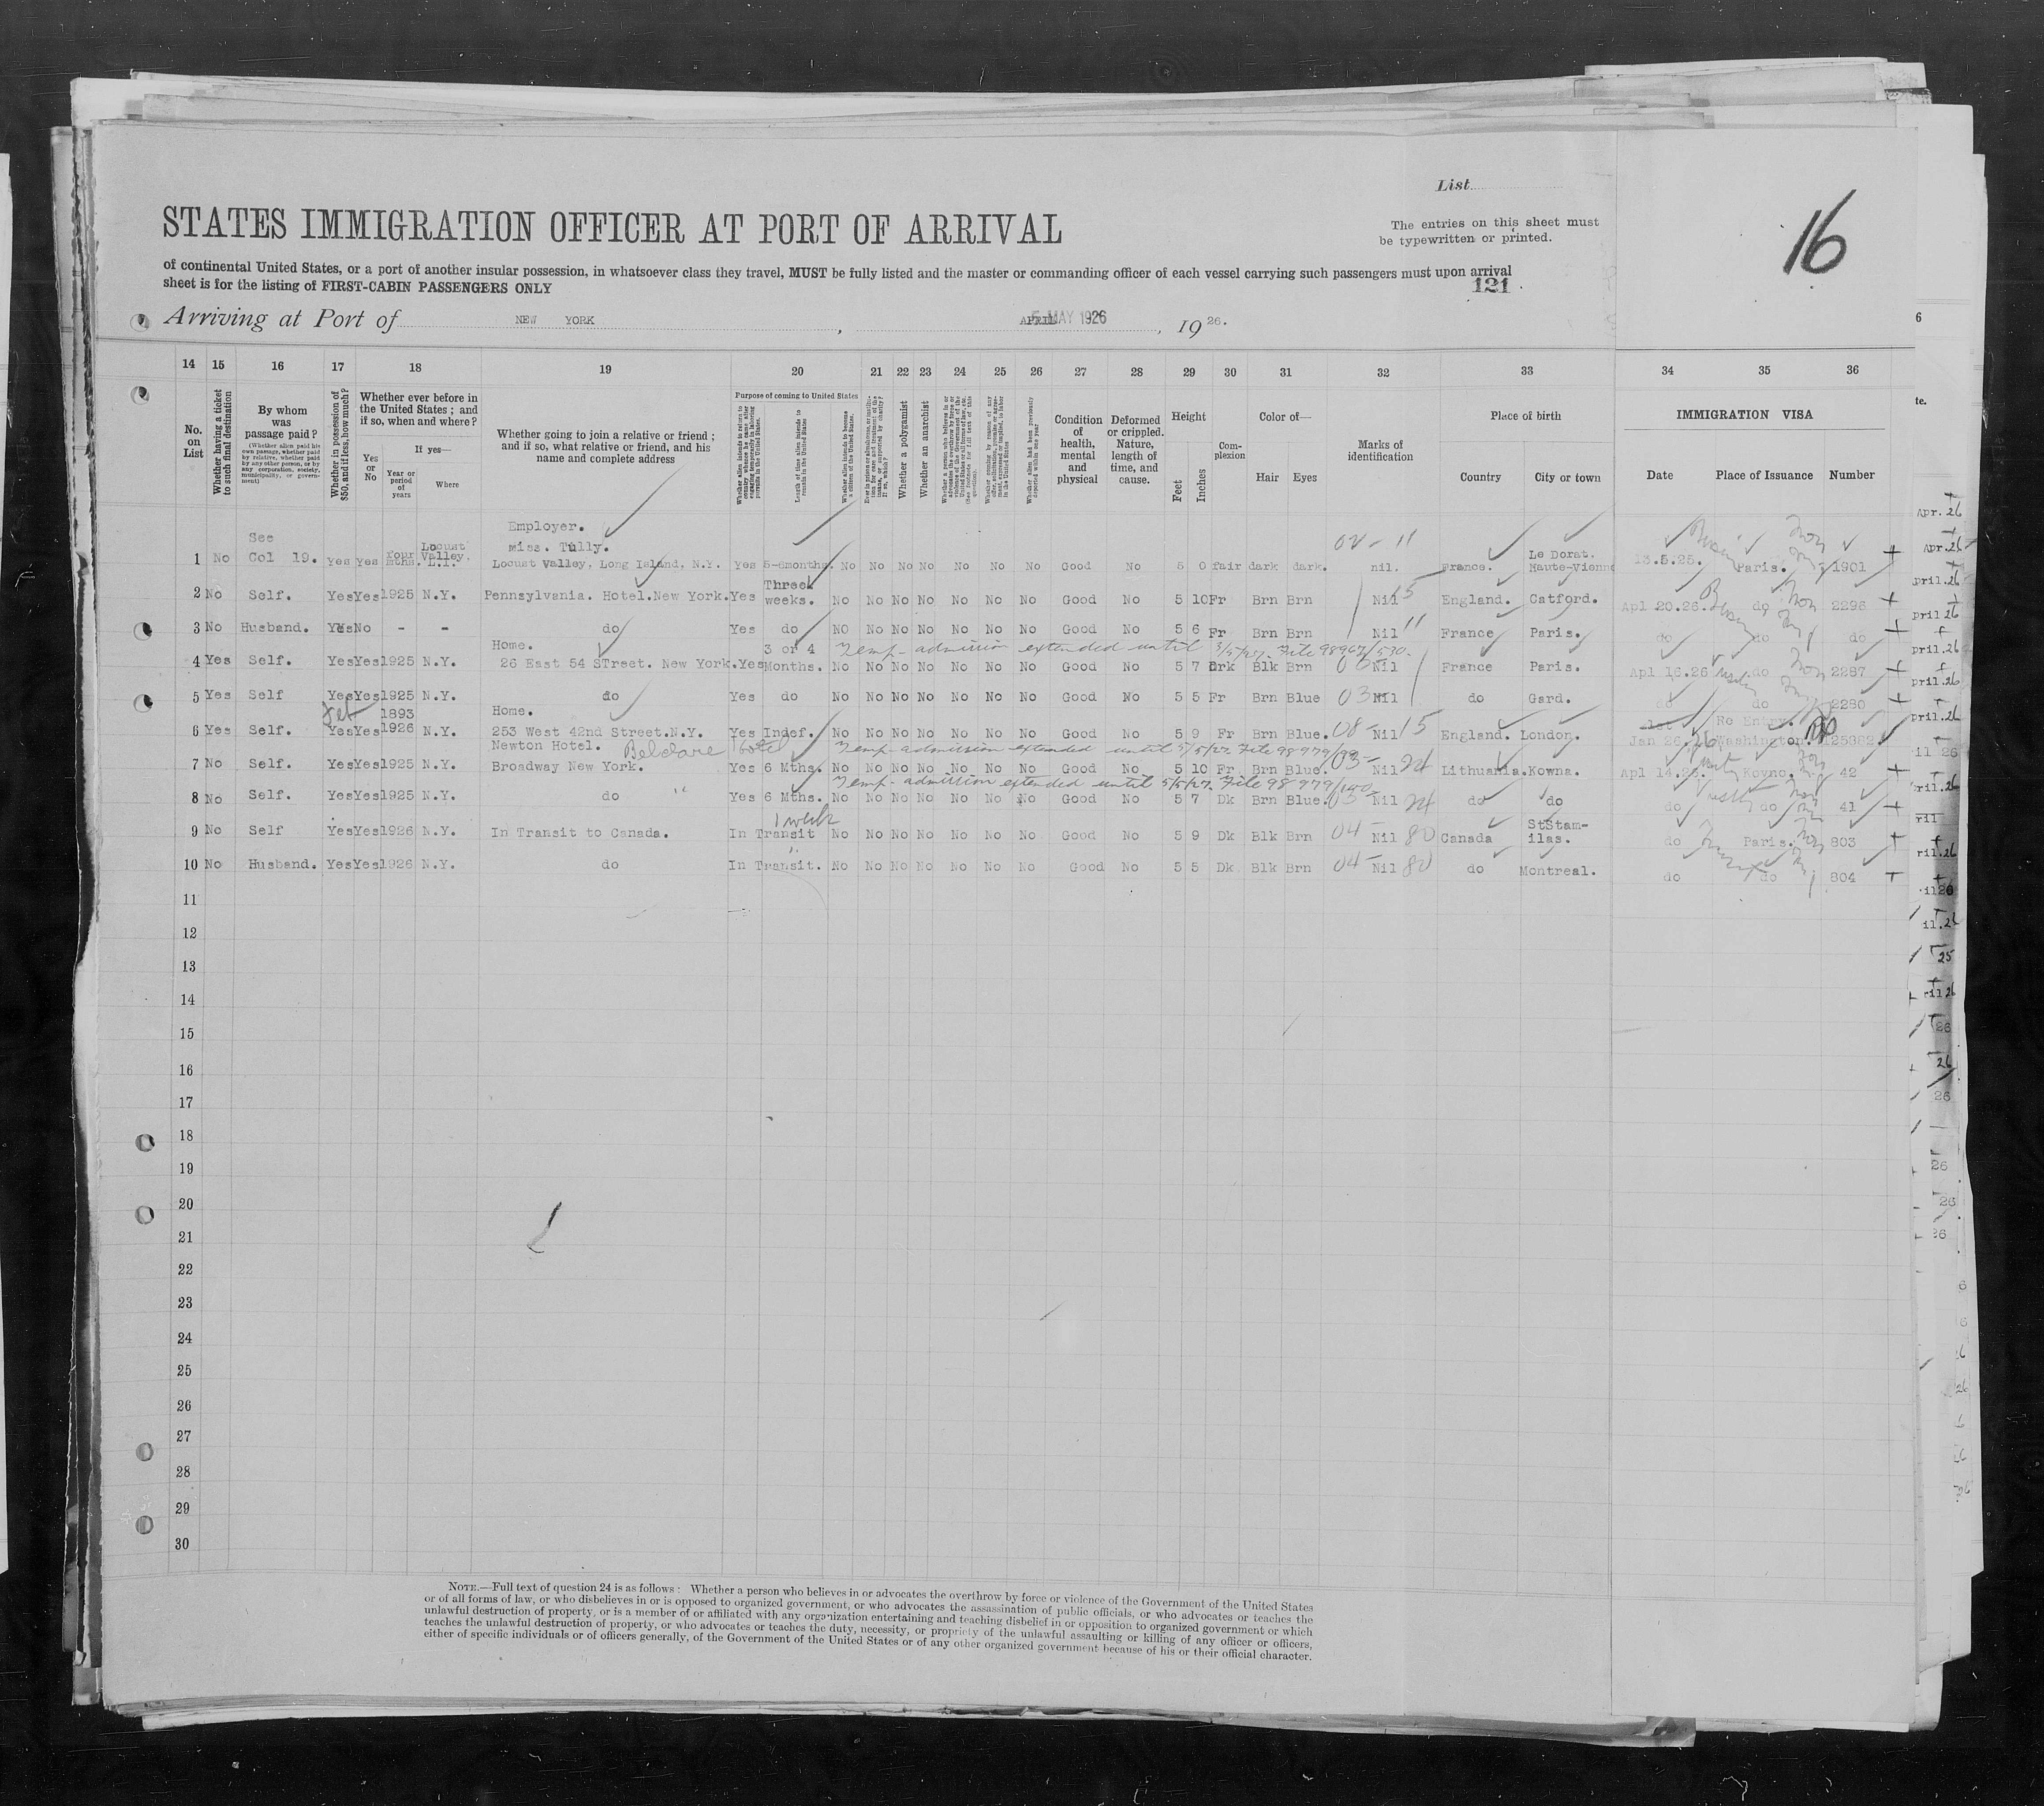 List
STATES IMMIGRATION OFFICER AT PORT OF ARRIVAL
The entries on this sheet must
be typewritten or printed.
16
of continental United States, or a port of another insular possession, in whatsoever class they travel, MUST be fully listed and the master or commanding officer of each vessel carrying such passengers must upon arrival
sheet is for the listing of FIRST-CABIN PASSENGERS ONLY
121
Arriving at Port of NEW YORK, APRIL 5 MAY 1926, 19 26.
14 15 16 17 18 19 20 21 22 23 24 25 26 27 28 29 30 31 32 33 34 35 36
No. on List
Whether having a ticket to such final destination
By whom was passage paid?
(Whether alien paid his own passage, whether paid by relative, whether paid by any other person, or by any corporation, society, municipality, or government)
Whether in possession of $50, and if less, how much?
Whether ever before in the United States; and if so, when and where?
Yes or No
If yes—
Year or period of years
Where
Whether going to join a relative or friend; and if so, what relative or friend, and his name and complete address
Purpose of coming to United States
Length of time alien intends to remain in the United States
Whether alien intends to become a citizen of the United States.
Whether a polygamist
Whether an anarchist
Condition of health, mental and physical
Deformed or crippled. Nature, length of time, and cause.
Height
Feet
Inches
Complexion
Color of—
Hair
Eyes
Marks of identification
Place of birth
Country
City or town
IMMIGRATION VISA
Date
Place of Issuance
Number
1 No See Col 19. Yes Yes Four mths. Locust Valley. L.I. Employer. miss. Tully. Locust Valley, Long Island, N.Y. Yes 5-6months. No No No No No No No Good No 5 0 fair dark dark. nil. 02-11 France. Le Dorat. Haute-Vienne 13.5.25. Paris. 1901
2 No Self. Yes Yes 1925 N.Y. Pennsylvania. Hotel. New York. Yes Three weeks. No No No No No No No Good No 5 10 Fr Brn Brn Nil 15 England. Catford. Apl 20.26. do 2296
3 No Husband. Yes No - - do Yes do NO No No No No No No Good No 5 6 Fr Brn Brn Nil 11 France Paris. do do do
Temp- admission extended until 5/5/27. File 98967/530.
4 Yes Self. Yes Yes 1925 N.Y. Home. 26 East 54 STreet. New York. Yes 3 or 4 Months. No No No No No No No Good No 5 7 Drk Blk Brn Nil France Paris. Apl 16.26 do 2287
5 Yes Self Yes Yes 1925 N.Y. do Yes do No No No No No No No Good No 5 5 Fr Brn Blue 03 Nil do Gard. do do 2280
6 Yes Self. Yes Yes 1893 1926 N.Y. Home. 253 West 42nd Street. N.Y. Yes Indef. No No No No No No No Good No 5 9 Fr Brn Blue. 08- Nil 15 England. London. Jan 26. 26 Re Entry. Washington. 125882
Temp- admission extended until 5/5/27. File 98979/
7 No Self. Yes Yes 1925 N.Y. Newton Hotel. Belclare Hotel Broadway New York. Yes 6 Mths. No No No No No No No Good No 5 10 Fr Brn Blue. 03- Nil 24 Lithuania. Kowna. Apl 14.26. Kovno. 42
Temp- admission extended until 5/5/27. File 98979/100.
8 No Self. Yes Yes 1925 N.Y. do " Yes 6 Mths. No No No No No No No Good No 5 7 Dk Brn Blue. 03- Nil 24 do do do do 41
9 No Self Yes Yes 1926 N.Y. In Transit to Canada. In Transit 1 week No No No No No No No Good No 5 9 Dk Blk Brn 04- Nil 80 Canada StStam-ilas. do Paris. 803
10 No Husband. Yes Yes 1926 N.Y. do In Transit. " No No No No No No No Good No 5 5 Dk Blk Brn 04- Nil 80 do Montreal. do do 804
11
12
13
14
15
16
17
18
19
20
21
22
23
24
25
26
27
28
29
30
NOTE.—Full text of question 24 is as follows: Whether a person who believes in or advocates the overthrow by force or violence of the Government of the United States
or of all forms of law, or who disbelieves in or is opposed to organized government, or who advocates the assassination of public officials, or who advocates or teaches the
unlawful destruction of property, or is a member of or affiliated with any organization entertaining and teaching disbelief in or opposition to organized government or which
teaches the unlawful destruction of property, or who advocates or teaches the duty, necessity, or propriety of the unlawful assaulting or killing of any officer or officers,
either of specific individuals or of officers generally, of the Government of the United States or of any other organized government because of his or their official character.